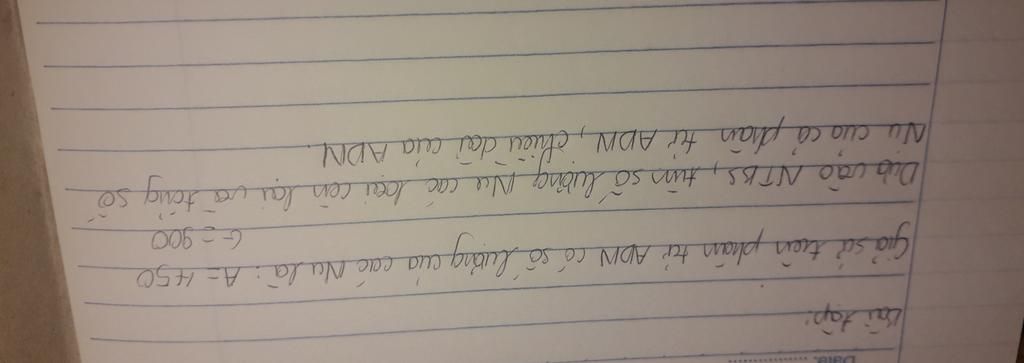 Date: ..............
Bài tập:
Giả sử trên phân tử ADN có số lượng của các Nu là: A = 450
G = 900
Dựa vào NTBS, tìm số lượng Nu các loại còn lại và tổng số
Nu của cả phân tử ADN, chiều dài của ADN.